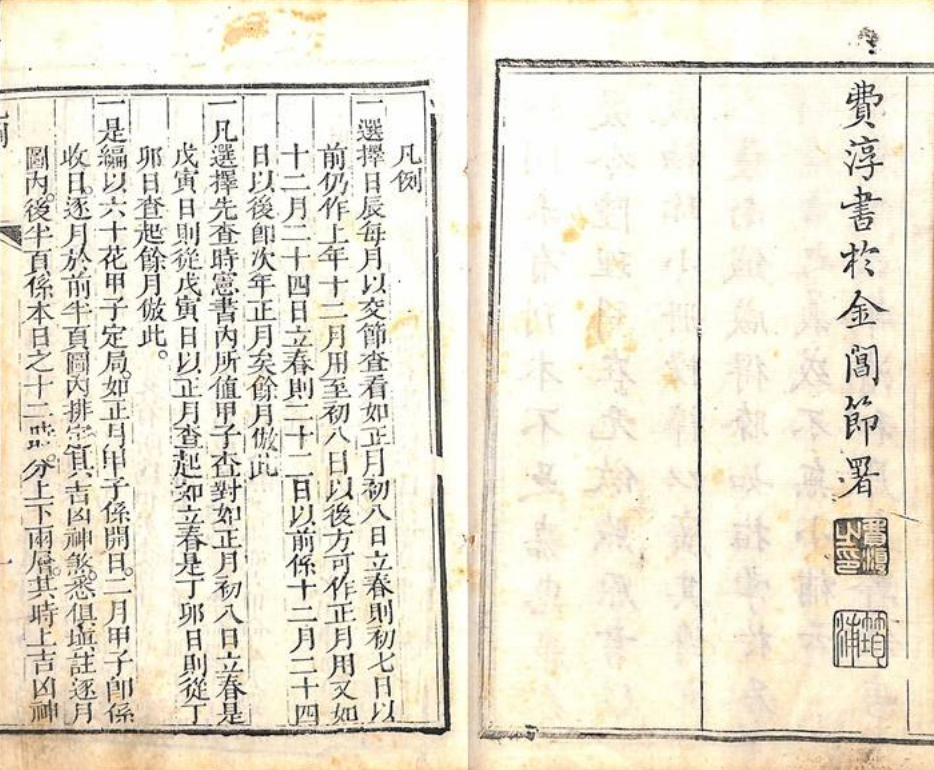 費淳書於金閶節署
費淳之印
筠浦
凡例
一選擇日辰每月以交節查看如正月初八日立春則初七日以
前仍作上年十二月用至初八日以後方可作正月用又如
十二月二十四日立春則二十二日以前係十二月二十四
日以後卽次年正月矣餘月倣此
一凡選擇先查時憲書內所值甲子查對如正月初八日立春是
戊寅日則從戊寅日以正月查起如立春是丁卯日則從丁
卯日查起餘月倣此。
一是編以六十花甲子定局。如正月甲子係開日。二月甲子卽係
收日。逐月於前半頁圖內排定眞吉凶神煞。悉俱塡註逐月
圖內。後半頁係本日之十二時。分上下兩層。其時上吉凶神